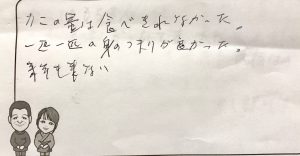 カニの量は食べきれなかった。
一匹一匹の身のつまりが良かった。
来年も来たい